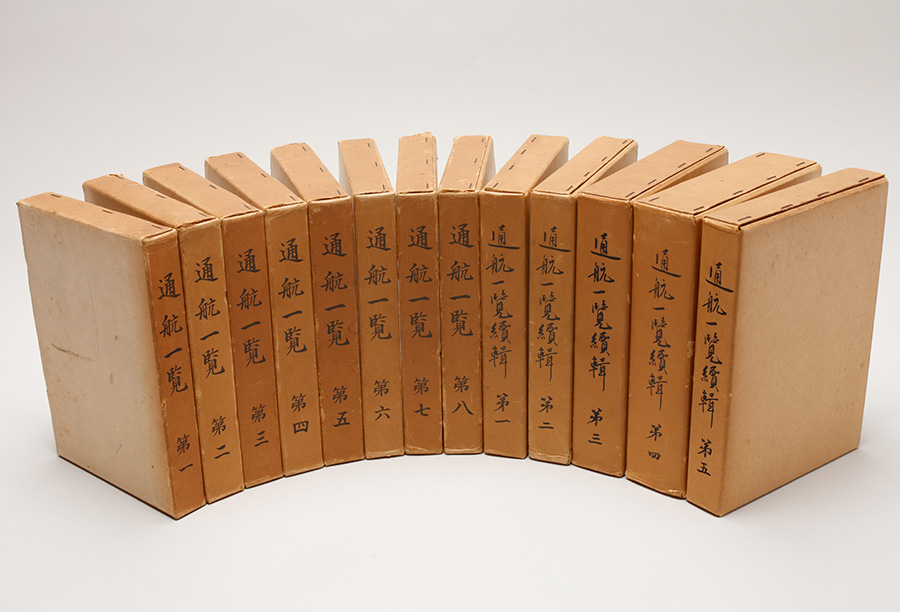 通航一覧 第一
通航一覧 第二
通航一覧 第三
通航一覧 第四
通航一覧 第五
通航一覧 第六
通航一覧 第七
通航一覧 第八
通航一覽續輯 第一
通航一覽續輯 第二
通航一覽續輯 第三
通航一覽續輯 第四
通航一覽續輯 第五